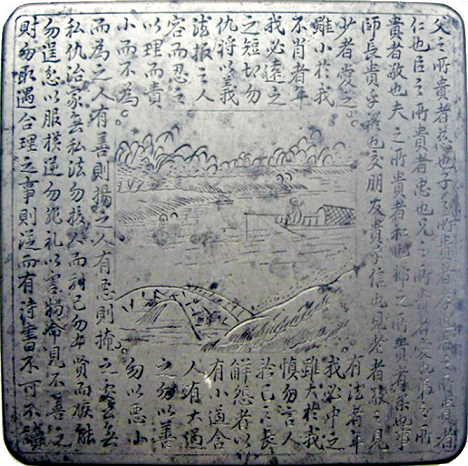 父之所貴者慈也子之所貴者孝也君之所貴者
仁也臣之所貴者忠也兄之所貴者友也弟之所
貴者敬也夫之所貴者和也婦之所貴者柔也事
師長貴乎禮也交朋友貴乎信也見老者敬之見
少者愛之。
有法者年
雖小於我
我必中之
不肖者年
雖大於我
我必遠之
慎勿言人
之短切勿
於己之長
仇將以義
解怨者以
法报之人
有小過含
容而忍之
人有大過
以理而責
之勿以善
小而不為。
勿以惡小
而為之人有善則揚之人有惡則掩之處世無
私仇治家無私法勿損人而利己勿妒賢而嫉能
勿逞忿以服橫逆勿非礼以害物命見不善之
財勿取遇合理之事則從而有詩書不可不讀